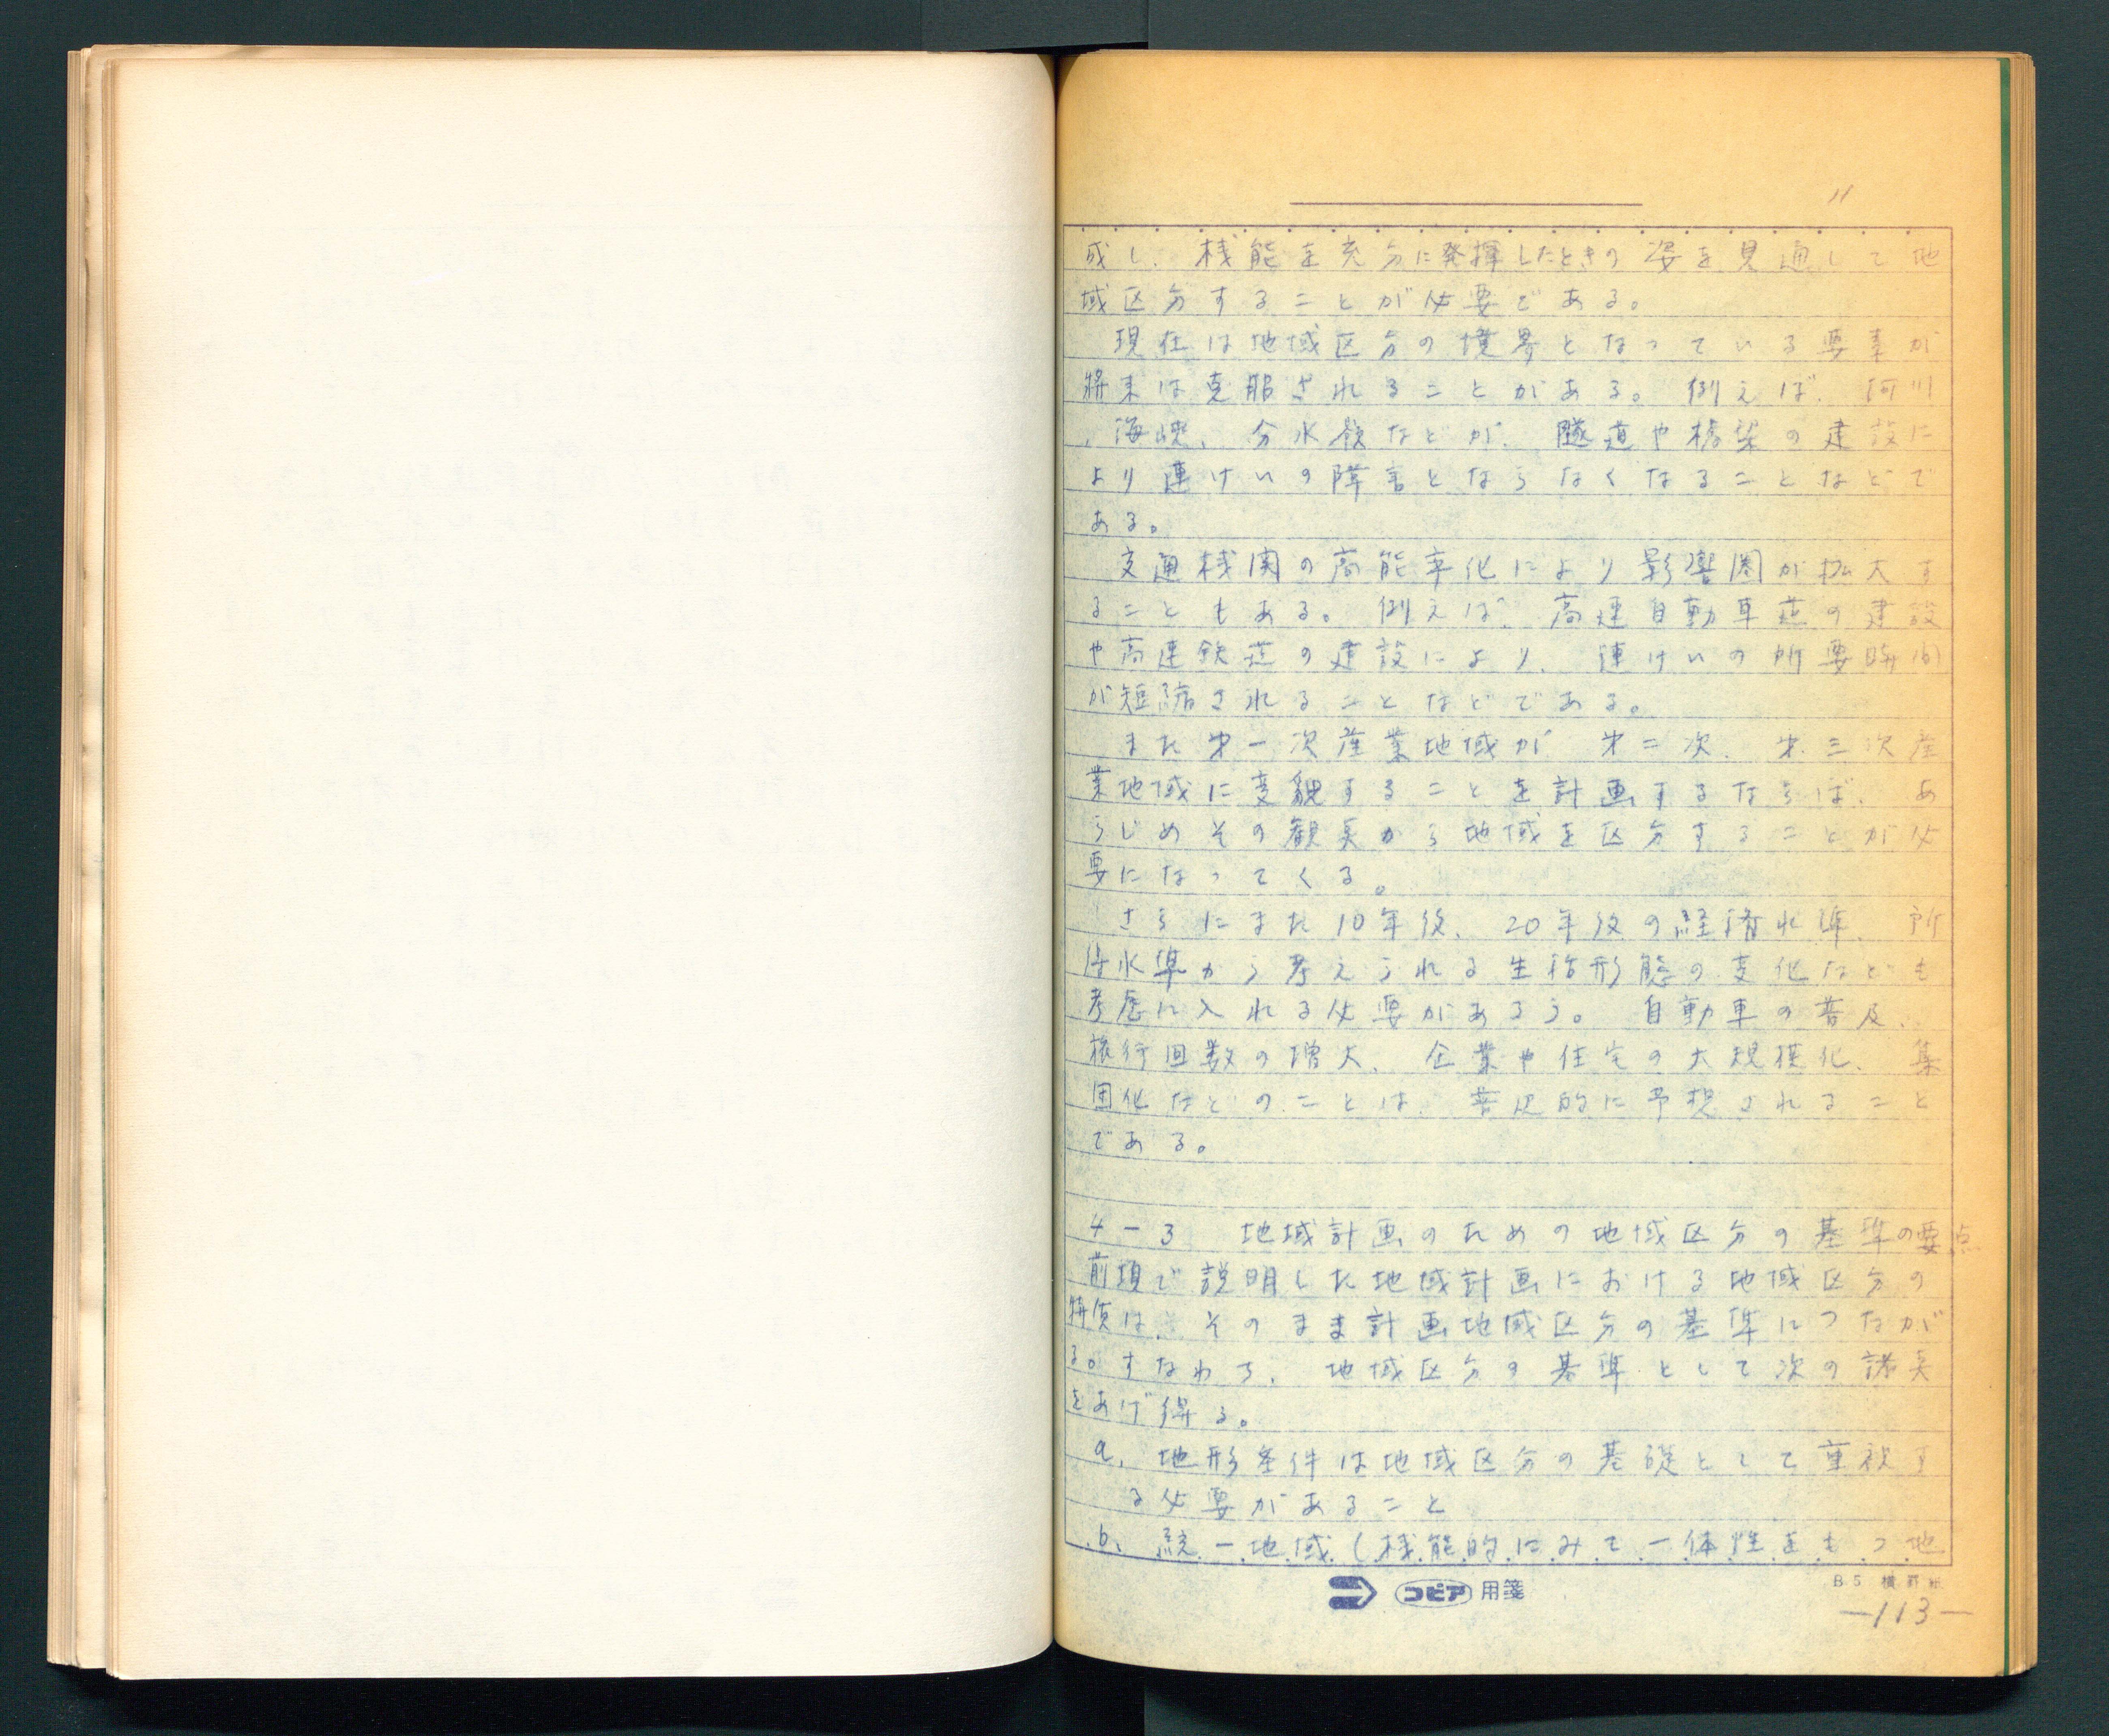 11
成し、機能を充分に発揮したときの姿を見通して地
域区分することが必要である。
現在は地域区分の境界となっている要素が
将来は克服されることがある。例えば、河川
、海峡、分水嶺などが、隧道や橋梁の建設に
より連けいの障害とならなくなることなどで
ある。
交通機関の高能率化により影響圏が拡大す
ることもある。例えば、高速自動車道の建設
や高速鉄道の建設により、連けいの所要時間
が短縮されることなどである。
また才一次産業地域が才二次、才三次産
業地域に変貌することを計画するならば、あ
らじめその観点から地域を区分することが必
要になってくる。
さらにまた10年後、20年後の経済水準、所
得水準から考えられる生活形態の変化なども
考慮に入れる必要があろう。自動車の普及、
旅行回数の増大、企業や住宅の大規模化、集
団化などのことは、普辺的に予想されること
である。
4－3 地域計画のための地域区分の基準の要点
前項で説明した地域計画における地域区分の
特質は、そのまま計画地域区分の基準につなが
る。すなわち、地域区分の基準として次の諸点
をあげ得る。
a、地形条件は地域区分の基礎として重視す
る必要があること
b、統一地域（機能的にみて一体性をもつ地
コピア用箋
B5 横罫紙
—113—